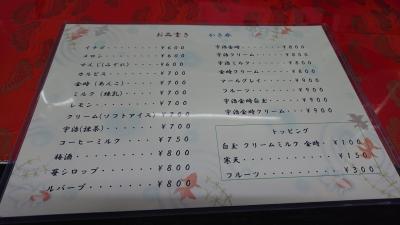 お品書き　かき氷
イチゴ・・・・・・・¥600
メロン・・・・・・・¥600
せんじ(みぞれ)・・・¥600
カルピス・・・・・・¥700
金時(あんこ)・・・・¥700
ミルク(練乳)・・・・¥700
レモン・・・・・・・¥700
クリーム(ソフトアイス)¥700
宇治(抹茶)・・・・・¥700
コーヒーミルク・・・¥750
梅酒・・・・・・・・¥800
苺シロップ・・・・・¥800
ルバーブ・・・・・・¥800
宇治金時・・・・・・¥800
宇治クリーム・・・・¥800
宇治ミルク・・・・・¥800
金時クリーム・・・・¥800
アールグレイ・・・・¥900
フルーツ・・・・・・¥900
宇治金時白玉・・・・¥900
宇治金時クリーム・・¥900
トッピング
白玉 クリームミルク 金時・¥100
寒天・・・・・・・・¥150
フルーツ・・・・・・¥300